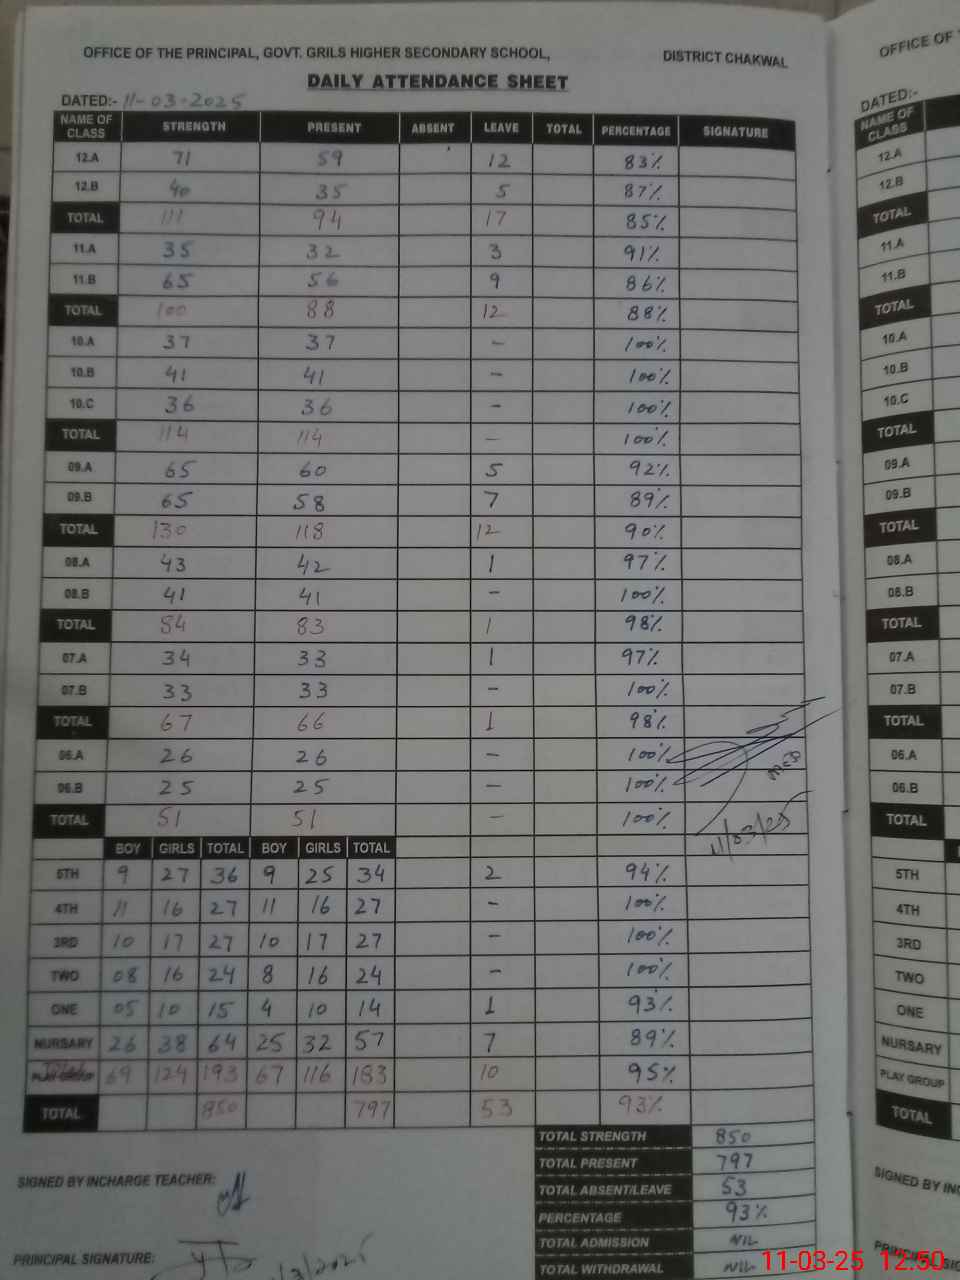 OFFICE OF THE PRINCIPAL, GOVT. GRILS HIGHER SECONDARY SCHOOL, DISTRICT CHAKWAL
DAILY ATTENDANCE SHEET
DATED:- 11-03-2025
NAME OF CLASS STRENGTH PRESENT ABSENT LEAVE TOTAL PERCENTAGE SIGNATURE
12.A 71 59 12 83%
12.B 40 35 5 87%
TOTAL 111 94 17 85%
11.A 35 32 3 91%
11.B 65 56 9 86%
TOTAL 100 88 12 88%
10.A 37 37 - 100%
10.B 41 41 - 100%
10.C 36 36 - 100%
TOTAL 114 114 - 100%
09.A 65 60 5 92%
09.B 65 58 7 89%
TOTAL 130 118 12 90%
08.A 43 42 1 97%
08.B 41 41 - 100%
TOTAL 84 83 1 98%
07.A 34 33 1 97%
07.B 33 33 - 100%
TOTAL 67 66 1 98%
06.A 26 26 - 100%
06.B 25 25 - 100%
TOTAL 51 51 - 100%
11/03/25
BOY GIRLS TOTAL BOY GIRLS TOTAL
5TH 9 27 36 9 25 34 2 94%
4TH 11 16 27 11 16 27 - 100%
3RD 10 17 27 10 17 27 - 100%
TWO 08 16 24 8 16 24 - 100%
ONE 05 10 15 4 10 14 1 93%
NURSARY 26 38 64 25 32 57 7 89%
PLAY GROUP Total 69 124 193 67 116 183 10 95%
TOTAL 850 797 53 93%
TOTAL STRENGTH 850
TOTAL PRESENT 797
TOTAL ABSENT/LEAVE 53
PERCENTAGE 93%
TOTAL ADMISSION NIL
TOTAL WITHDRAWAL NIL
SIGNED BY INCHARGE TEACHER:
PRINCIPAL SIGNATURE: /3/2025
OFFICE OF
DATED:-
NAME OF CLASS
12.A
12.B
TOTAL
11.A
11.B
TOTAL
10.A
10.B
10.C
TOTAL
09.A
09.B
TOTAL
08.A
08.B
TOTAL
07.A
07.B
TOTAL
06.A
06.B
TOTAL
5TH
4TH
3RD
TWO
ONE
NURSARY
PLAY GROUP
TOTAL
SIGNED BY
11-03-25 12:50